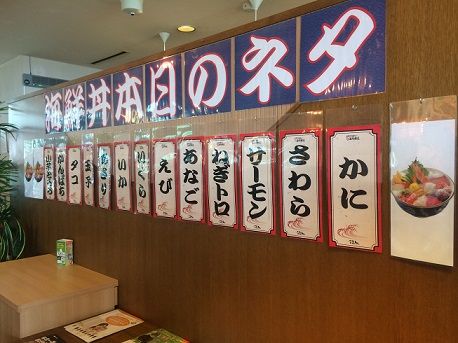 海鮮丼本日のネタ
かに
さわら
サーモン
ねぎトロ
あなご
えび
いくら
いか
あさり
玉子
タコ
かんぱち